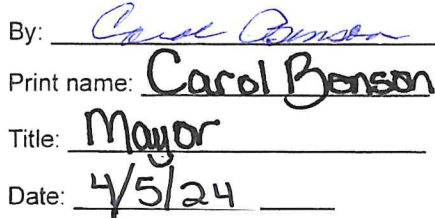 By: Carol Benson
Print name: Carol Benson
Title: Mayor
Date: 4/5/24